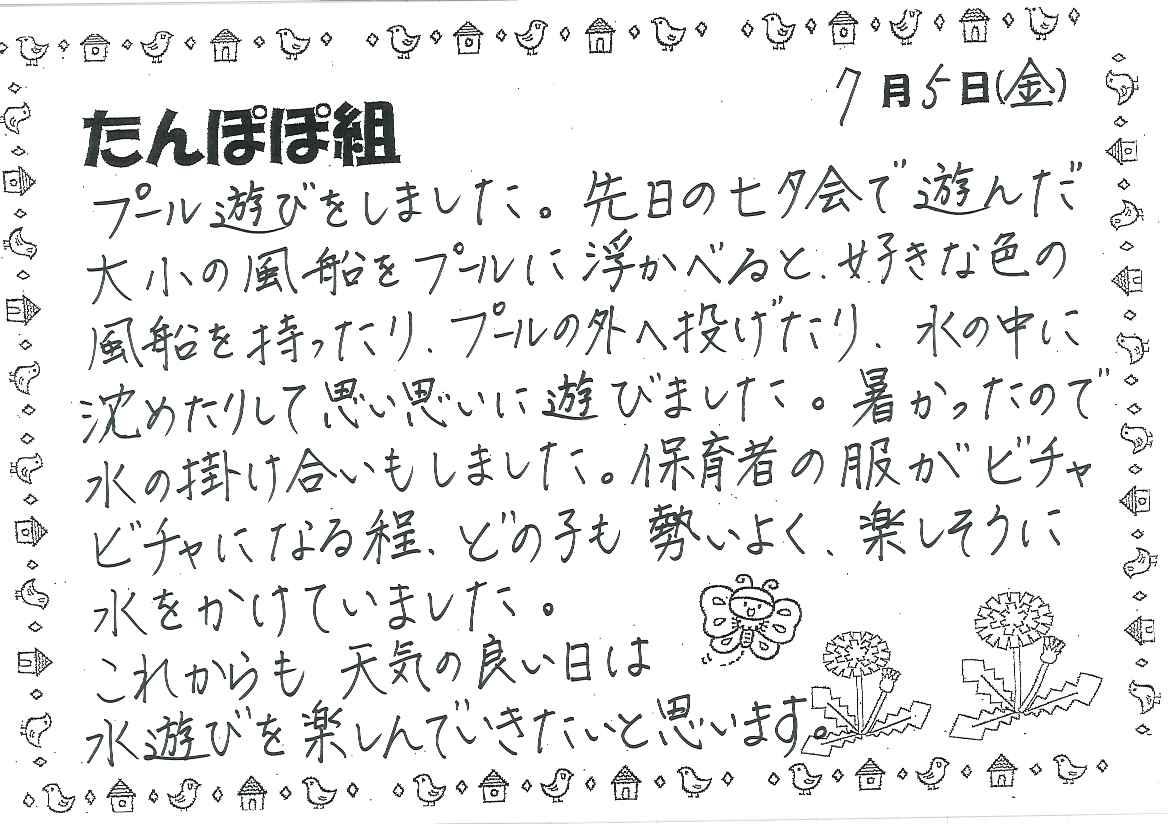 7月5日(金)
たんぽぽ組
プール遊びをしました。先日の七夕会で遊んだ
大小の風船をプールに浮かべると、好きな色の
風船を持ったり、プールの外へ投げたり、水の中に
沈めたりして思い思いに遊びました。暑かったので
水の掛け合いもしました。保育者の服がビチャ
ビチャになる程、どの子も勢いよく、楽しそうに
水をかけていました。
これからも天気の良い日は
水遊びを楽しんでいきたいと思います。